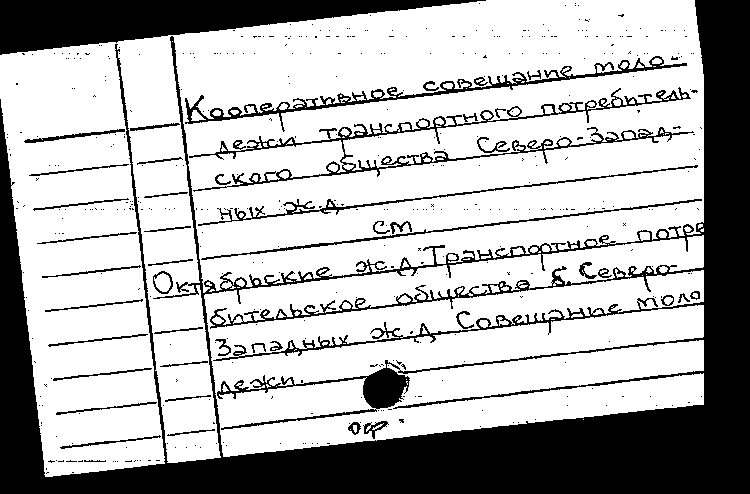 Кооперативное совещание моло-
дежи транспортного потребитель-
ского общества Северо-Запад-
ных ж.д.
см.
Октябрьские ж.д. Транспортное потре
бительское общество б. Северо-
Западных ж.д. Совещание моло
дежи.